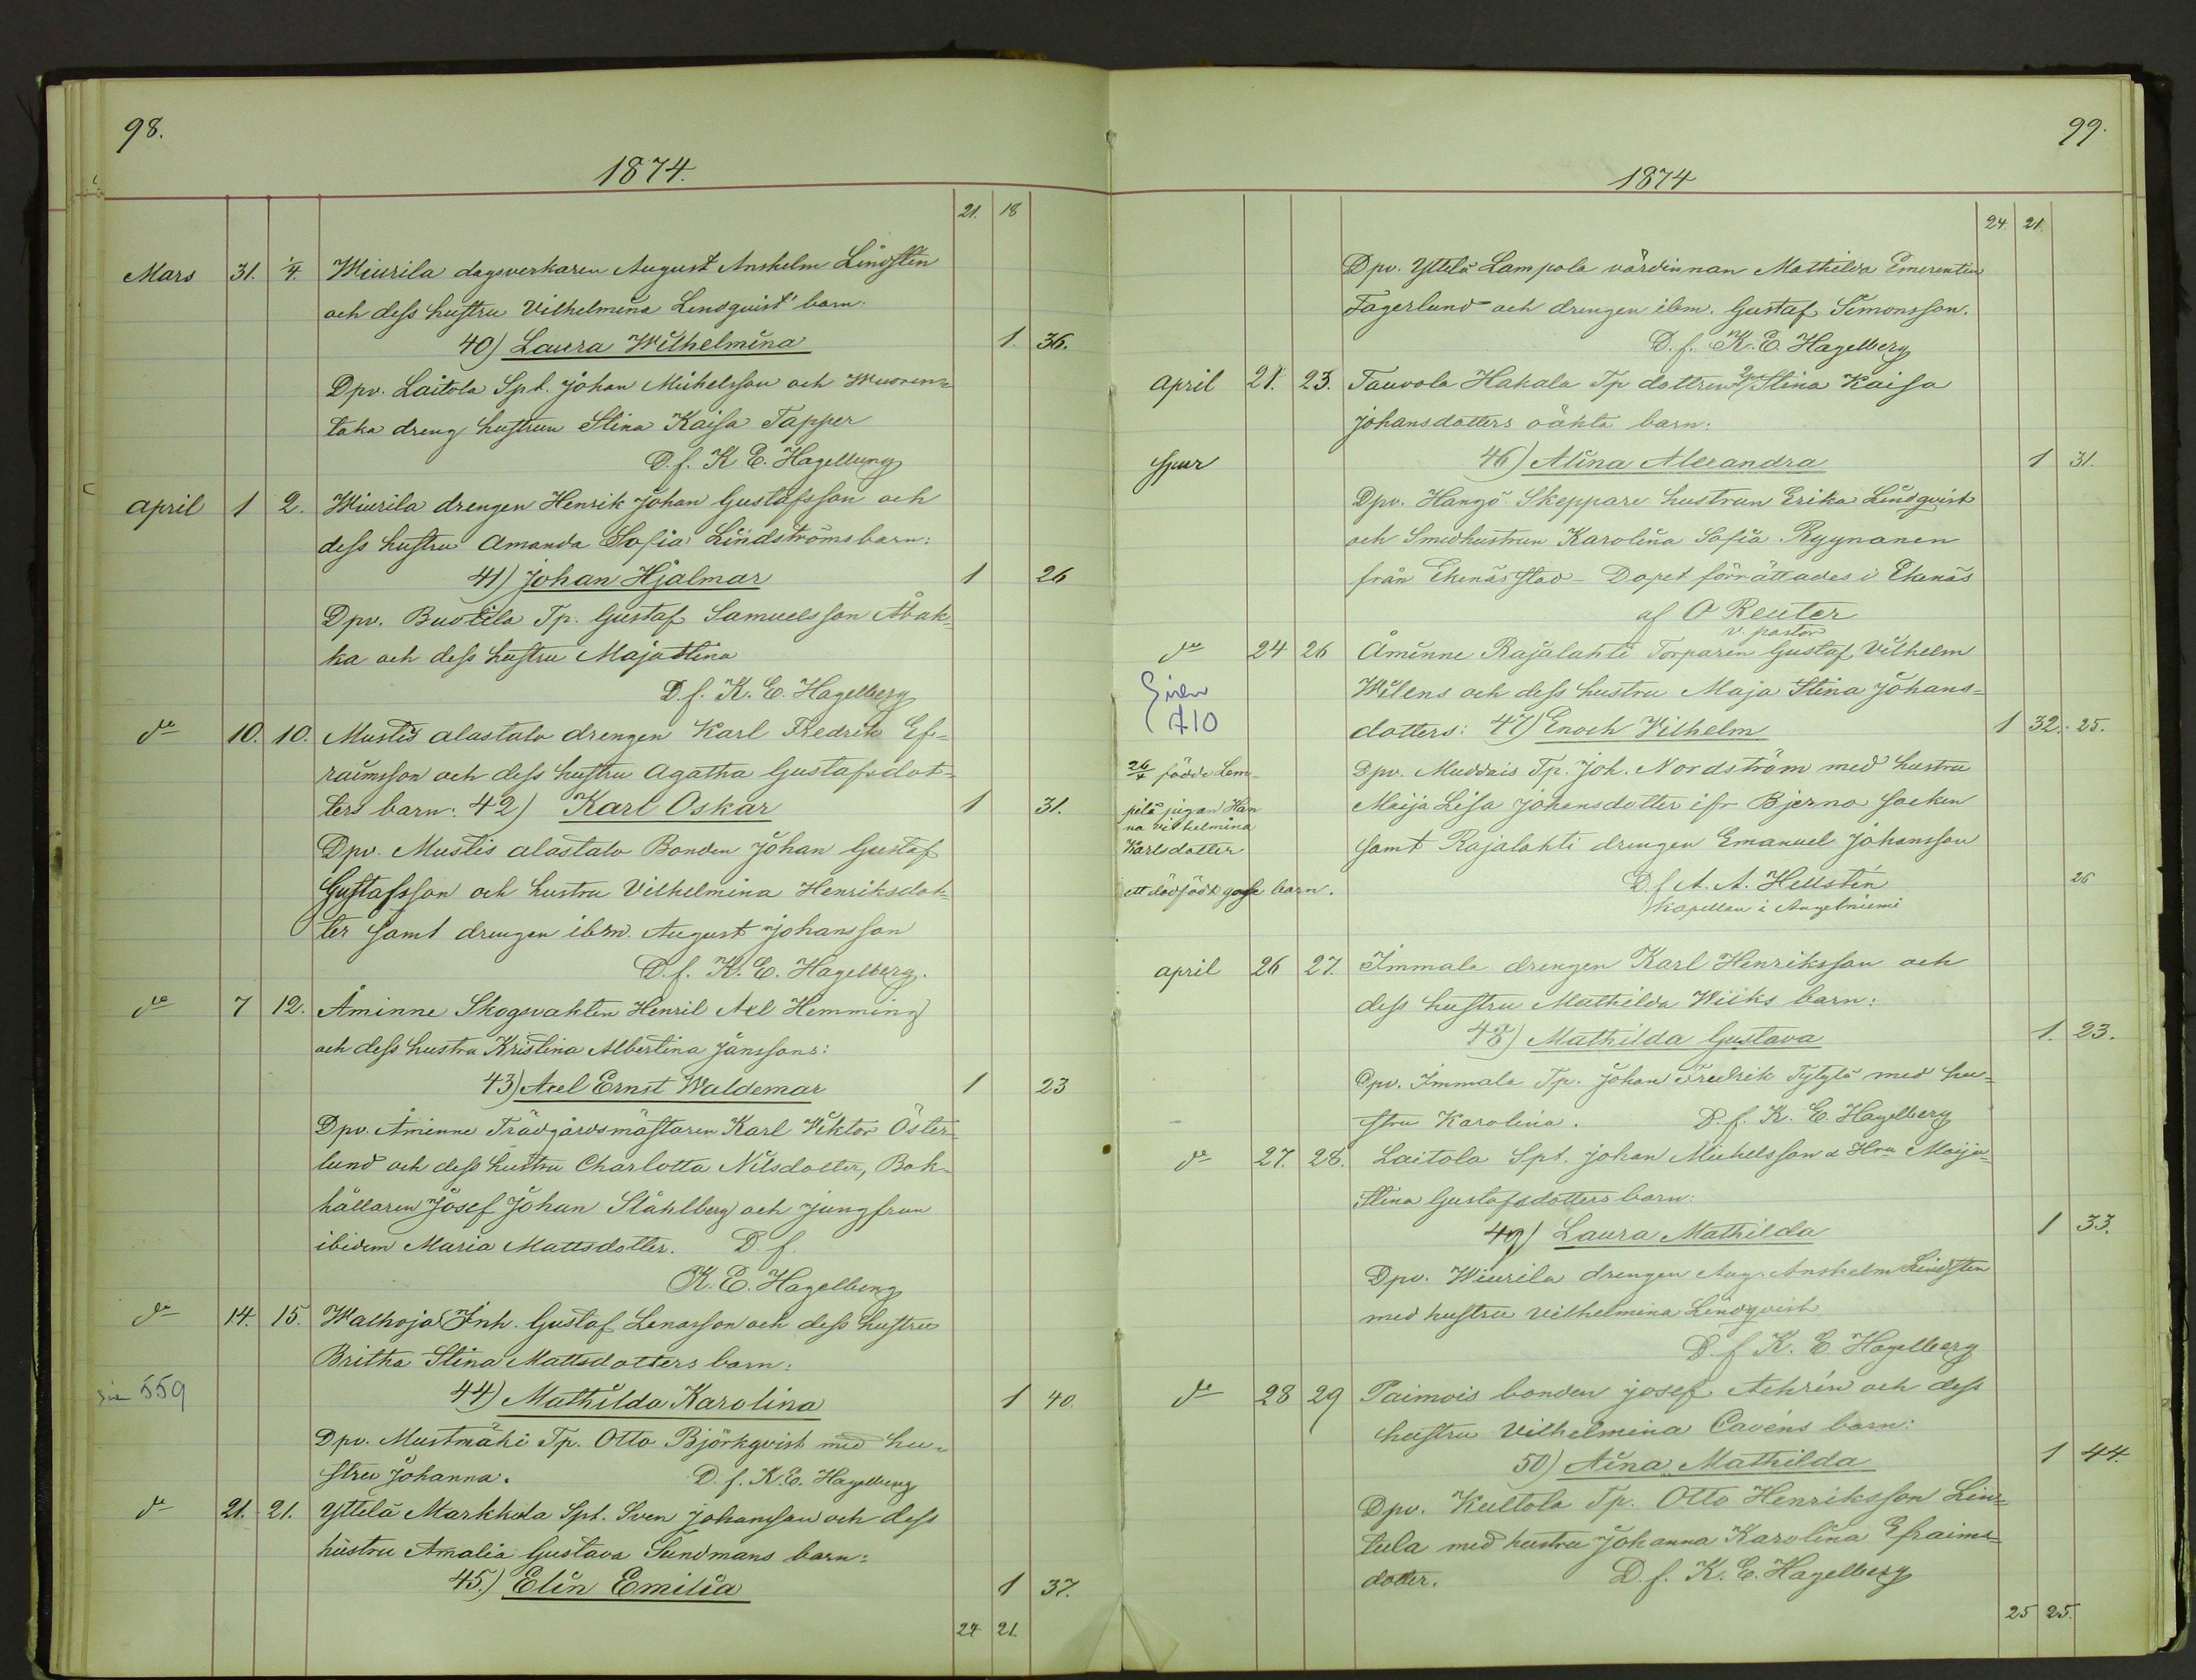 98.
1874.
21. 18
Mars 31. 1/4. Wiurila dagsverkaren August Anshelm Lindsten
och dess hustru Vilhelmina Lindquist barn:
40) Laura Wilhelmina 1. 36.
Dpv. Laitola Spt. Johan Michelsson och Wuoren=
taka dreng hustrun Stina Kaisa Tapper
D. f. K. E. Hagelberg
April 1 2. Wiurila drengen Henrik Johan Gustafsson och
dess hustru Amanda Sofia Lindströms barn:
41) Johan Hjalmar 1 26
Dpv. Buotila Tp. Gustaf Samuelsson
ka och dess hustru Maja Stina
D. f. K. E. Hagelberg
do 10. 10. Mustis alastalo drengen Karl Fredrik Ef=
raimsson och dess hustru Agatha Gustafsdot=
ters barn: 42) Karl Oskar 1 31.
Dpv. Mustis alastalo Bonden Johan Gustaf
Gustafsson och hustru Vilhelmina Henriksdot=
ter samt drengen ibm. August Johansson
D. f. K. E. Hagelberg.
do 7 12. Åminne Skogsvakten Henrik Axel Hemming
och dess hustru Kristina Albertina Jänssons:
43) Axel Ernst Waldemar 1 23
Dpv. Åminne Trädgårdsmästaren Karl Viktor Öster=
lund och dess hustru Charlotta Nilsdotter, Bok=
hållaren Josef Johan Ståhlberg och jungfrun
ibidem Maria Mattsdotter. D. f.
K. E. Hagelberg
do 14. 15. Walhoja Inh. Gustaf Lenarsson och dess hustru
Britha Stina Mattsdotters barn:
559 44) Mathilda Karolina 1 40.
Dpv. Mustmäki Tp. Otto Björkqvist med hu=
stru Johanna. D. f. K. E. Hagelberg
do 21. 21. Yttelä Markkula Spt. Sven Johansson och dess
hustru Amalia Gustava Sundmans barn:
45.) Elin Emilia 1 37.
24 21.
99.
1874
24. 21.
Dpv. Yttelä Lampola värdinnan Mathilda Emerentia
Fagerlund och drengen ibm. Gustaf Simonsson.
D. f. K. E. Hagelberg
April 21. 23. Tauvola Hakala Tp dottren Stina Kaisa
Johansdotters oäkta barn:
46) Alina Alexandra 1 31.
Dpv. Hangö Skeppare hustrun Erika Lindqvist
och Smedhustrun Karolina Sofia Ryynanen
från Ekenäs stad - Dopet förrättades i Ekenäs
af O Reuter
v. pastor
do 24 26 Åminne Rajalahti Torparen Gustaf Vilhelm
Wilens och dess hustru Maja Stina Johans=
710 dotters: 47) Enoch Vilhelm 1 32. 25.
26/4 födde Lem=
pilä pigan Han
na vilhelmina
Karlsdotter
ett dödfödt gosse barn.
Dpv. Muddais Tp. Joh. Nordström med hustru
Maija Lisa Johansdotter ifr Bjerno socken
samt Rajalahti drengen Emanuel Johansson
D. f. A. A. Hellstén 26
kapellan i Angelniemi
april 26 27. Immala drengen Karl Henriksson och
dess hustru Mathilda Wiiks barn:
48) Mathilda Gustava 1. 23.
Dpv. Immala Tp. Johan Fredrik Tytylä med hu=
stru Karolina. D. f. K. E. Hagelberg
do 27. 28. Laitola Spt. Johan Michelsson o Hru Maija
Stina Gustafsdotters barn:
49) Laura Mathilda 1 33.
Dpv. Wiurila drengen Aug. Anshelm Lindsten
med hustru Vilhelmina Lindqvist
D. f. K. E. Hagelberg
do 28 29 Paimois bonden Josef Achrén och dess
hustru Vilhelmina Cavéns barn:
50) Aina Mathilda 1 44.
Dpv. Kultola Tp. Otto Henriksson Lin=
tula med hustru Johanna Karolina Efraims=
dotter. D. f. K. E. Hagelberg
25 25.